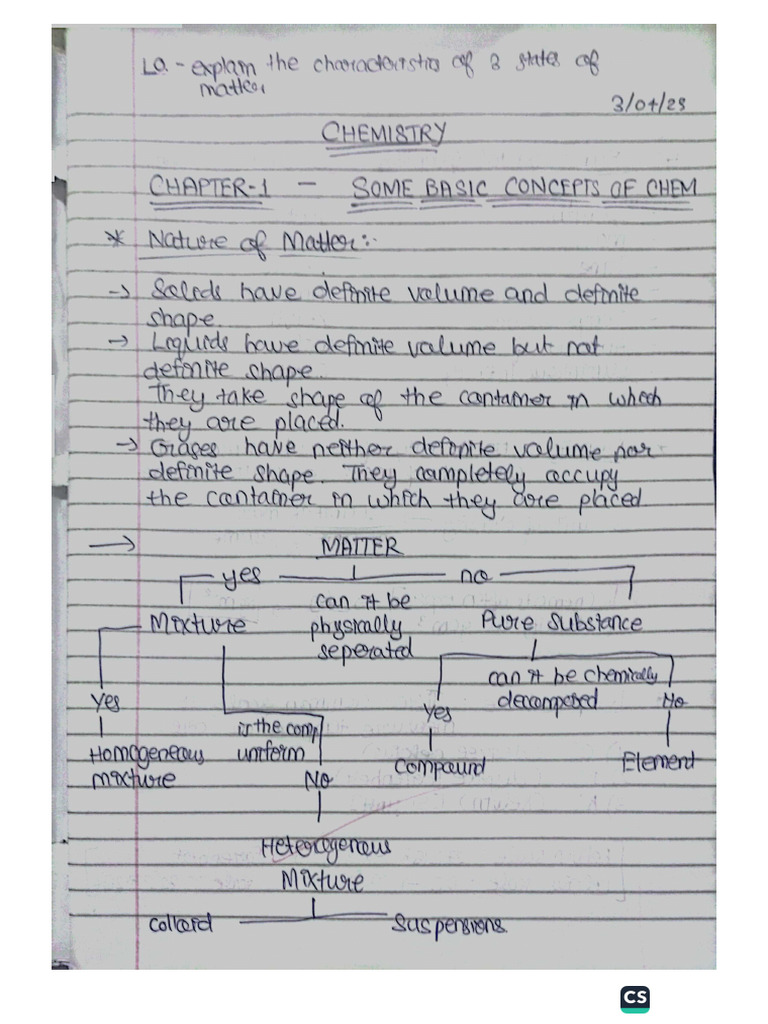 LO. - explain the characteristics of 3 states of
matter
3/04/25
CHEMISTRY
CHAPTER-1 - SOME BASIC CONCEPTS OF CHEM
* Nature of Matter:-
-> Solids have definite volume and definite
shape.
-> Liquids have definite volume but not
definite shape.
They take shape of the container in which
they are placed.
-> Gases have neither definite volume nor
definite shape. They completely occupy
the container in which they are placed
-> MATTER
yes no
can it be
physically
seperated
Mixture Pure Substance
can it be chemically
decomposed
yes yes No
is the comp
uniform
Homogeneous
mixture
No
Compound Element
Heterogenous
Mixture
Colloid Suspensions
CS